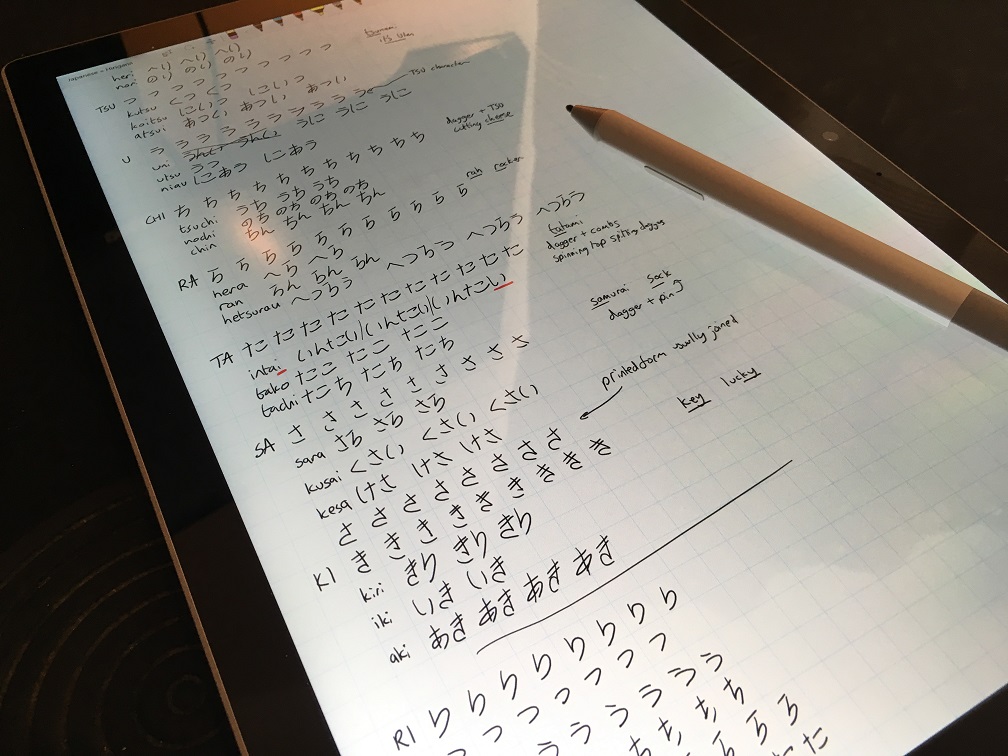 Japanese - Hiragana
heri へり へり へり
nori のり のり のり
tsunami
its when
TSU つ つ つ つ つ つ つ つ
kutsu くつ くつ
koitsu こいつ こいつ
atsui あつい あつい あつい
TSU character
U う う う う う う う う
uni うに うに
utsu うつ
niau にあう にあう
dagger + TSU
cutting cheese
CHI ち ち ち ち ち ち ち ち ち
tsuchi うち うち うち
nochi のち のち のち のち
chin ちん ちん ちん ちん
rah rocker
RA ら ら ら ら ら ら ら ら
hera へら へら
ran らん らん らん
hetsurau へつらう へつらう へつらう へつらう
tatami
dagger + combs
spinning top spitting daggers
TA た た た た た た た た た た
intai いんたい/いんたい/いんたこい
tako たこ たこ たこ
tachi たち たち たち
samurai sack
dagger + pin
SA さ さ さ さ さ さ さ さ さ
sara さら さら さら
kusai くさい くさい くさい
kesa けさ けさ けさ
printed form usually joined
さ さ さ さ さ さ さ さ
key lucky
KI き き き き き き き き
kiri きり きり きり
iki いき いき
aki あき あき あき あき
RI り り り り り り り
つ つ つ つ つ つ
う う う う う う
ち ち ち ち
ら ら ら
た た